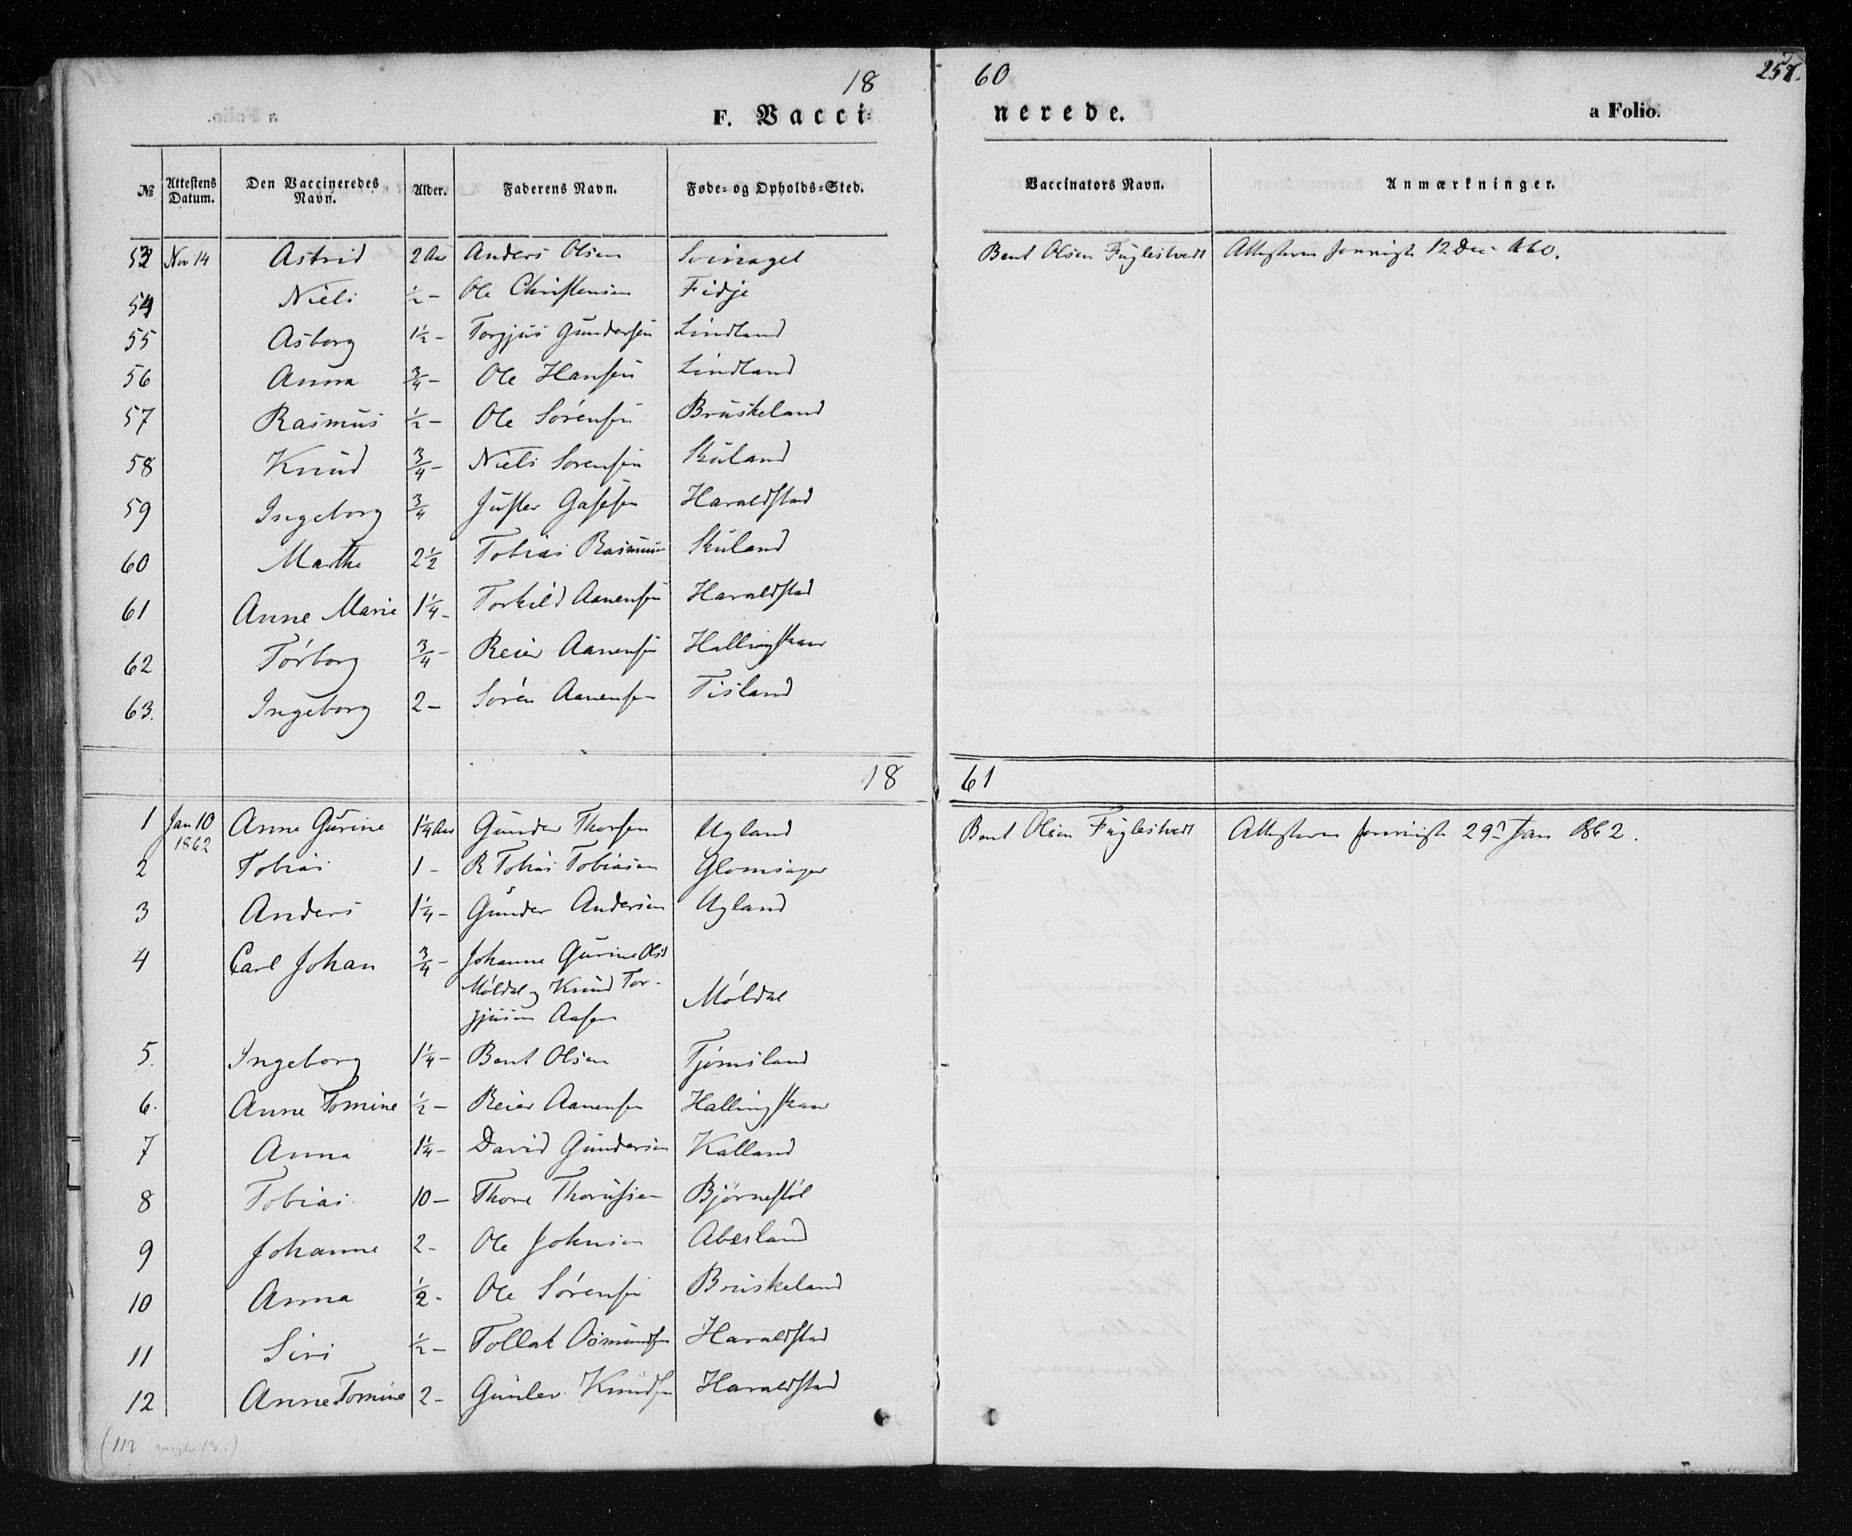 18 60 257.
F. Vacci= nerede. a Folio.
№ Attestens Datum. Den Vaccineredes Navn. Alder. Faderens Navn. Føde= og Opholds=Sted. Vaccinators Navn. Anmærkninger.
53 Nov 14 Astrid 2 Aar Anders Olsen Bent Olsen Fuglestvedt 12 Dec 1860.
54 Niels ½ – Ole Christensen Fidje
55 Asborg 1½ – Torgjus Gundersen Lindland
56 Anna ¾ – Ole Hansen Lindland
57 Rasmus ½ – Ole Sørensen Bruskeland
58 Knud ¾ – Niels Sørensen Skuland
59 Ingeborg ¾ Haraldstad
60 Marthe 2½ Tobias Rasmussen Skuland
61 Anne Marie 1¼ – Torkild Aanensen Haraldstad
62 Torborg ¾ – Reier Aanensen Hallingskaar
63. Ingeborg 2 – Søren Aanensen Tisland
18 61
1 Jan 10 1862 Anne Gurine 1¼ Aar Gunder Thorsen Ugland Bent Olsen Fuglestvedt 29 Jan 1862.
2 Tobias 1 – Tobias Tobiasen Glomsager
3 Anders 1¼ – Gunder Andersen Ugland
4 Carl Johan ¾ – Johanne Gurine Olsd
Møldal og Knud Tor-
gjusen Aasen Møldal
5. Ingeborg 1¼ – Bent Olsen Tjomsland
6. Anne Tomine ½ – Reier Aanensen Hallingskaar
7 Anna 1¼ – David Gundersen Kalland
8 Tobias 10 – Thore Bjørnestøl
9 Johanne 2 – Ole Johnsen Abesland
10 Anna ½ – Ole Sørensen Bruskeland
11 Siri ½ – Tollak Osmundsen Haraldstad
12 Anne Tomine 2 – Gunlev Knudsen Haraldstad